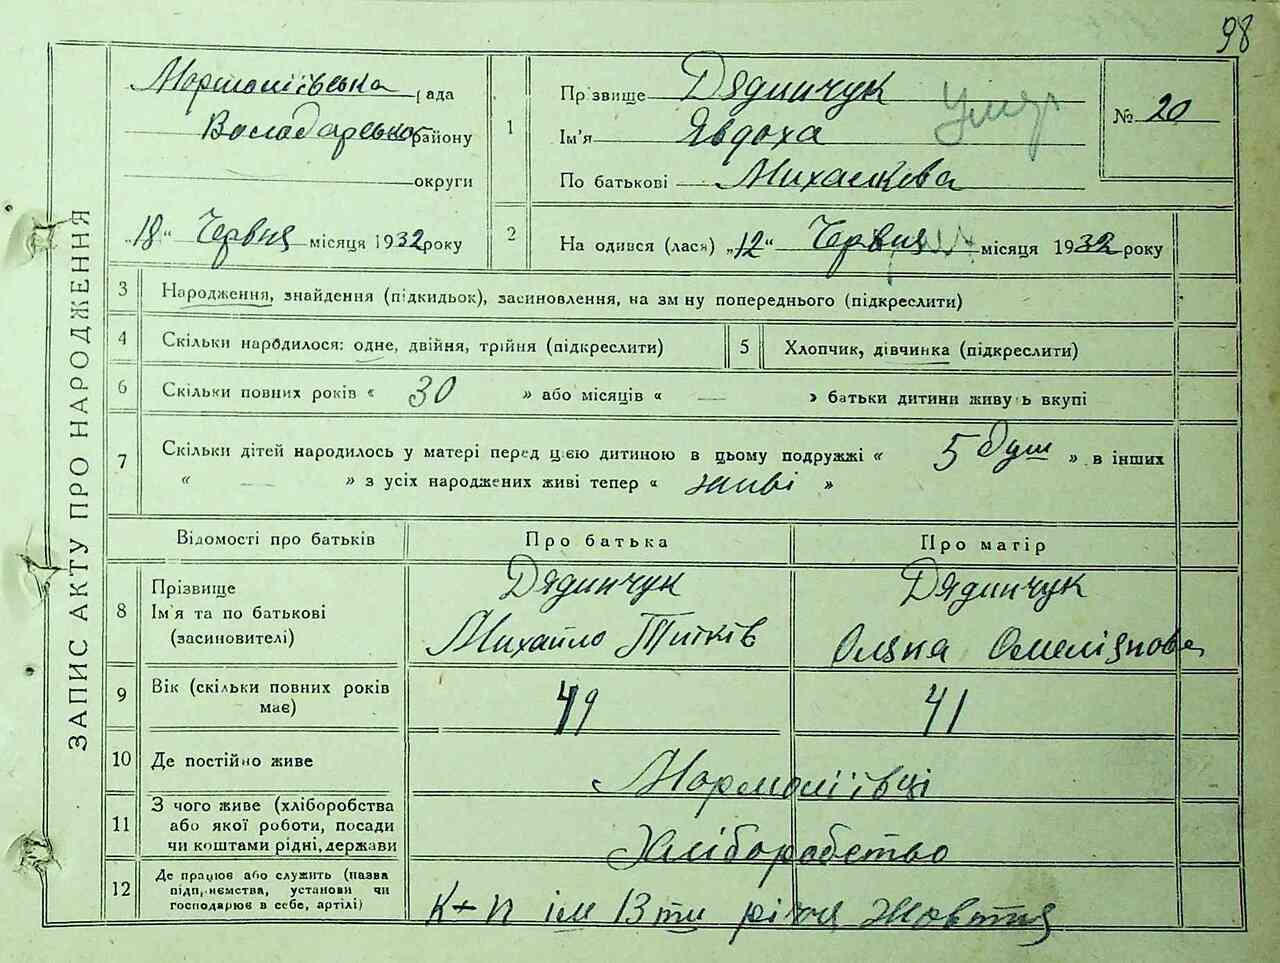 98
ЗАПИС АКТУ ПРО НАРОДЖЕННЯ
Мармоліївська рада
Володарського району
округи
"18" Червня місяця 1932 року
1
Прізвище Дядинчук
Ім'я Явдоха
По батькові Михайлова
Умер
№ 20
2
Народився (лася) "12" Червня місяця 1932 року
3 Народження, знайдення (підкидьок), засиновлення, на зміну попереднього (підкреслити)
4 Скільки народилося: одне, двійня, трійня (підкреслити)
5 Хлопчик, дівчинка (підкреслити)
6 Скільки повних років « 30 » або місяців « — » батьки дитини живуть вкупі
7 Скільки дітей народилось у матері перед цією дитиною в цьому подружжі « 5 душ » в інших
« — » з усіх народжених живі тепер « живі »
Відомості про батьків
Про батька
Про матір
8 Прізвище
Ім'я та по батькові
(засиновителі)
Дядинчук
Михайло Титків
Дядинчук
Оляна Омелянова
9 Вік (скільки повних років
має)
49
41
10 Де постійно живе
Мармоліївці
11 З чого живе (хліборобства
або якої роботи, посади
чи коштами рідні, держави
Хліборобство
12 Де працює або служить (назва
підприємства, установи чи
господарює в себе, артілі)
К+п ім 13ти річчя Жовтня